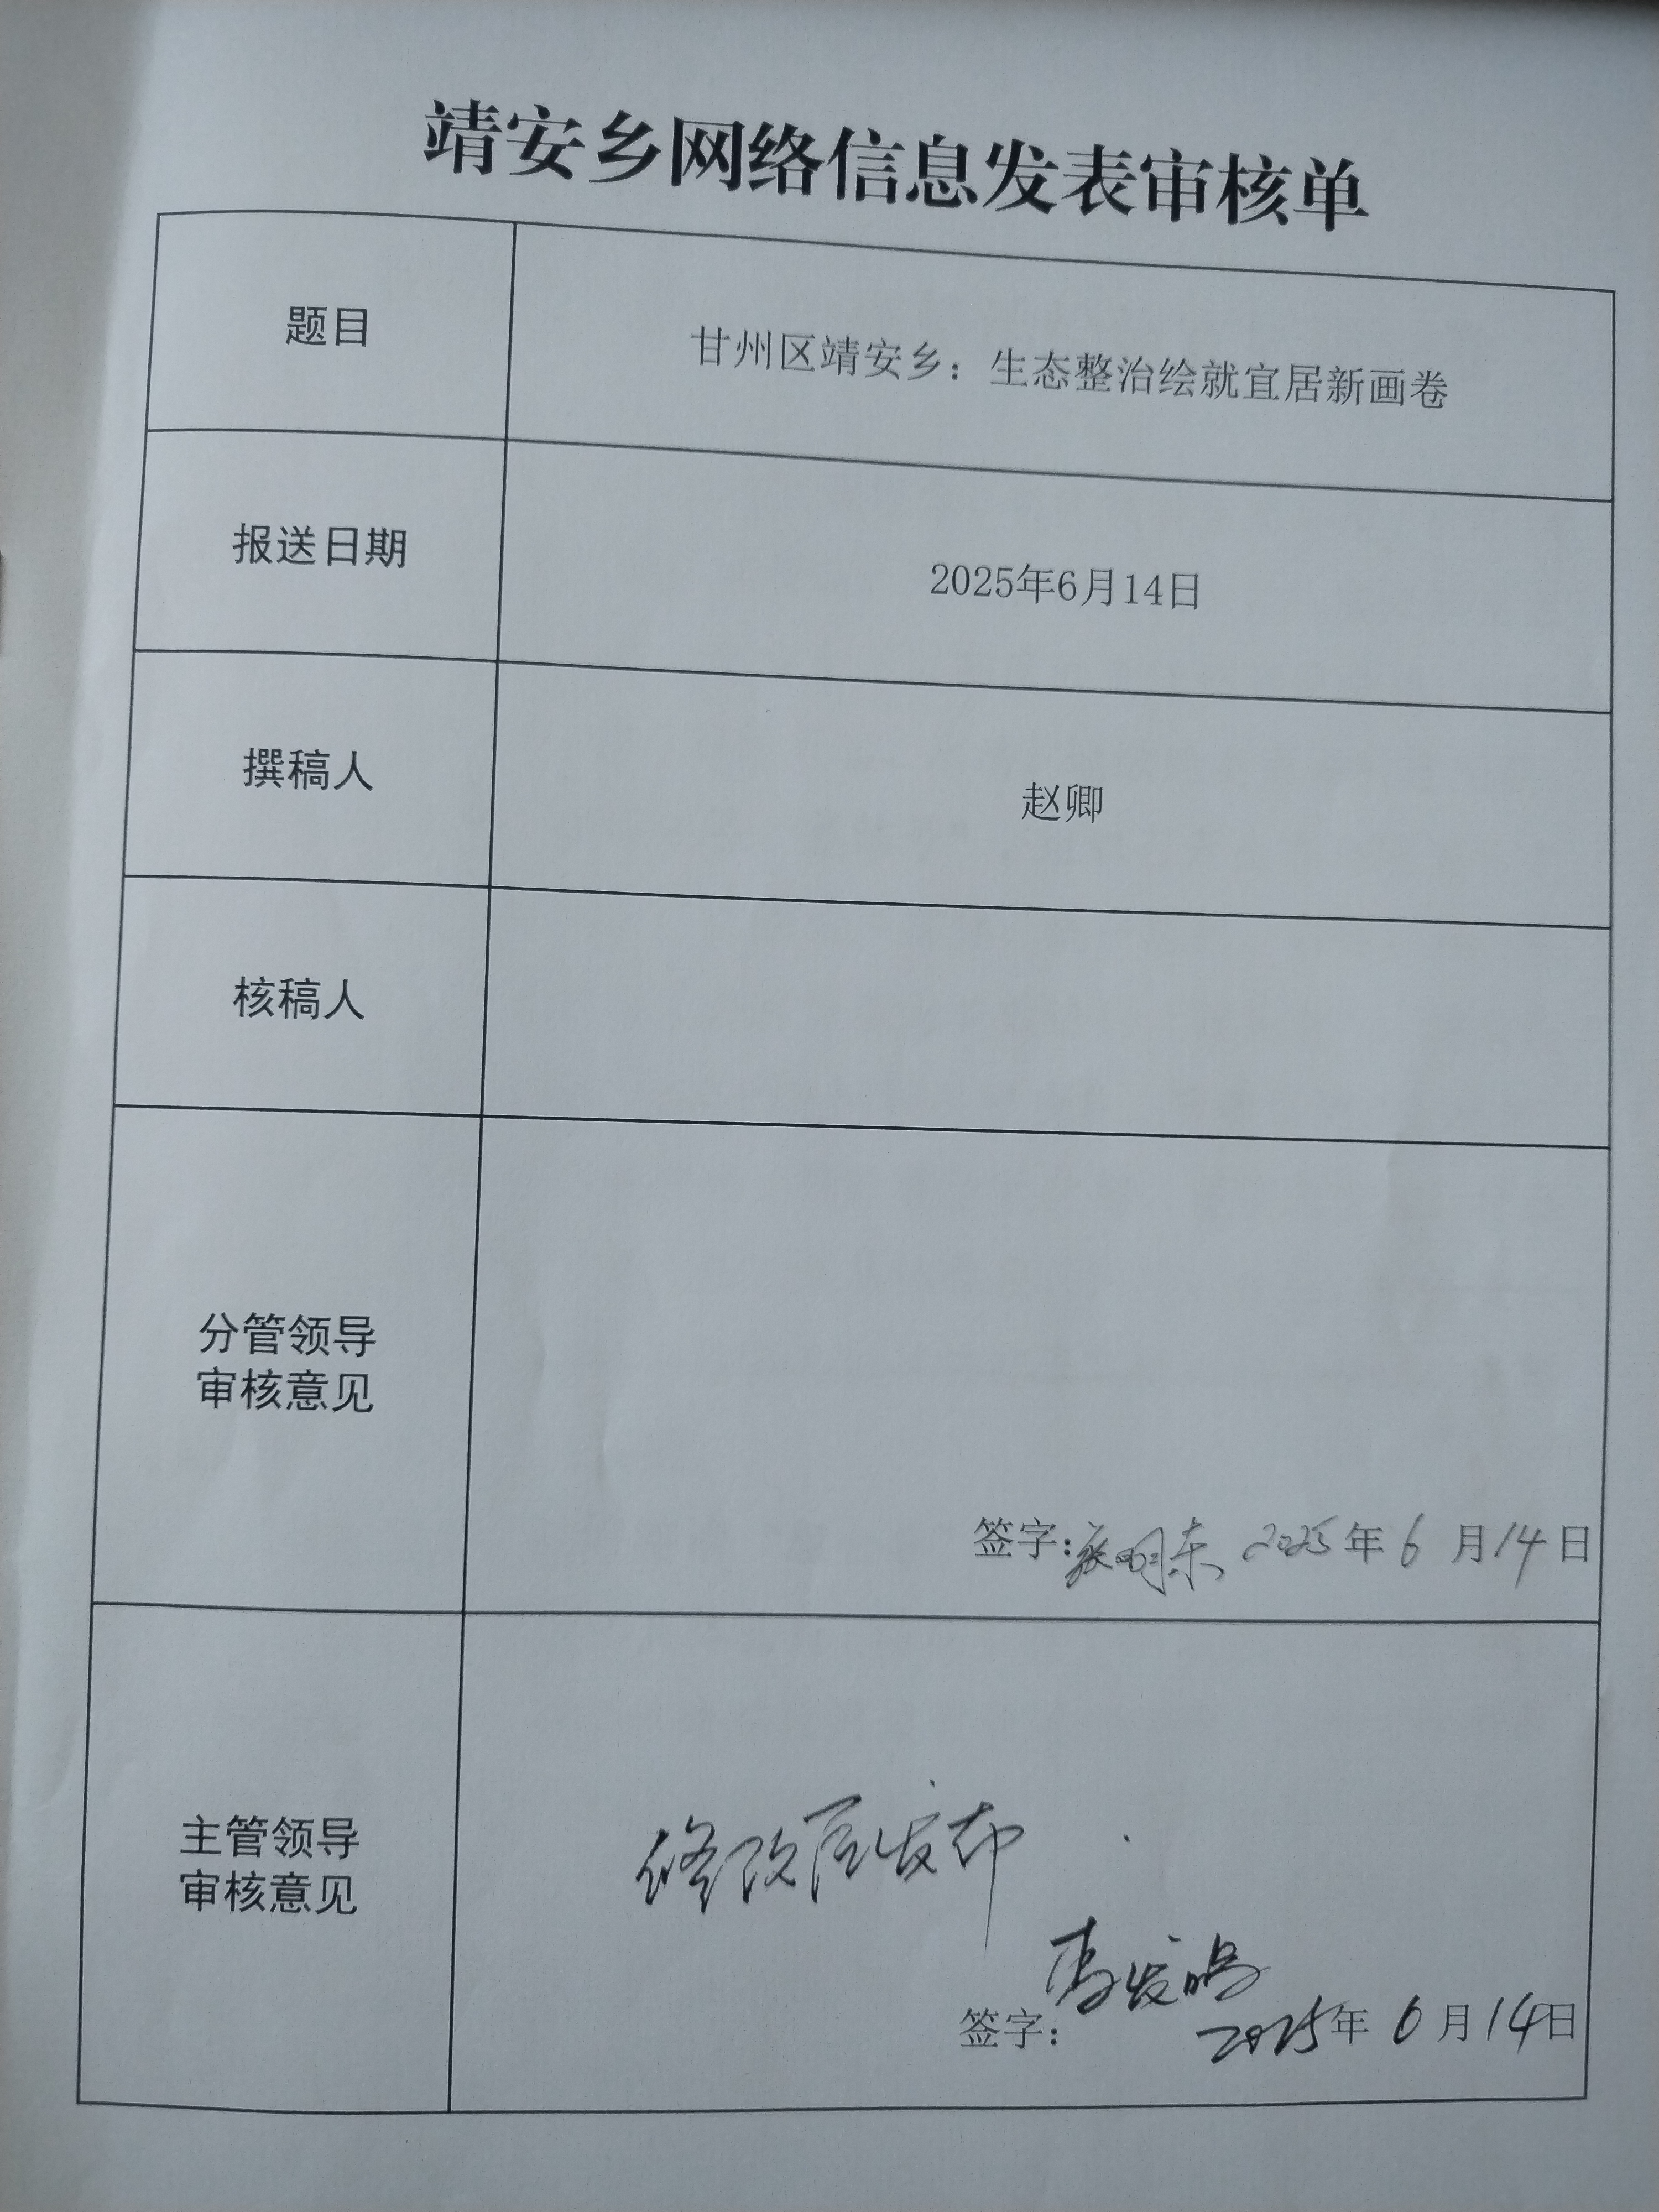 靖安乡网络信息发表审核单
题目
甘州区靖安乡：生态整治绘就宜居新画卷
报送日期
2025年6月14日
撰稿人
赵卿
核稿人
分管领导
审核意见
签字： 2025年6月14日
主管领导
审核意见
修改后发布
签字： 2025年6月14日